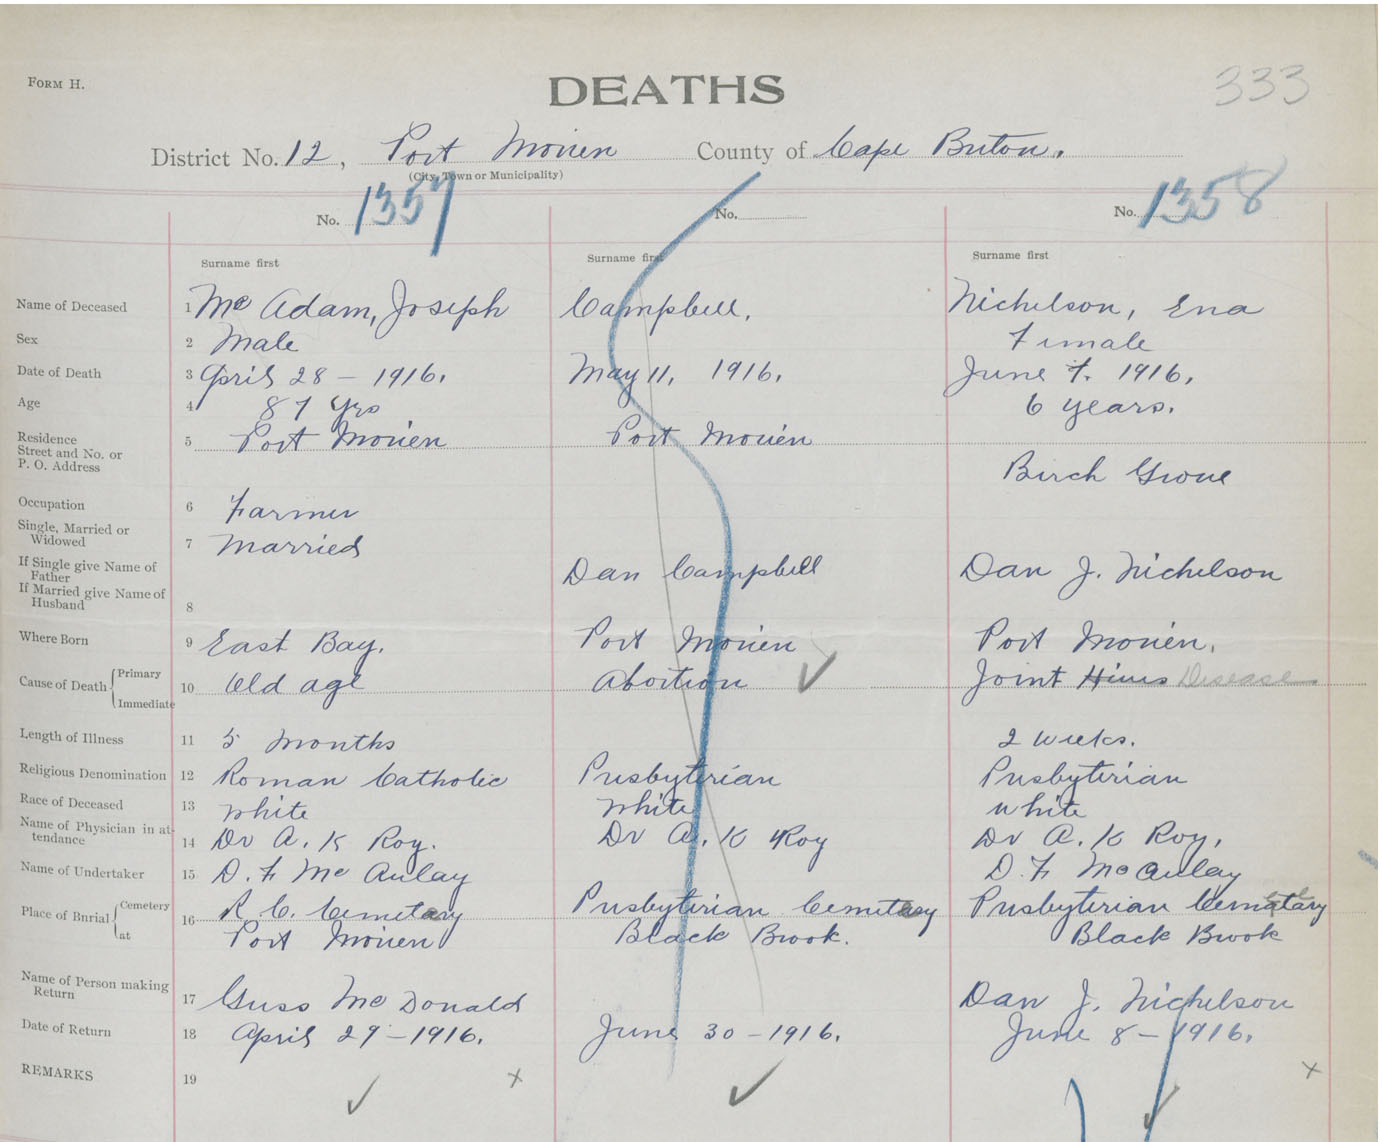 FORM H.
DEATHS
333
District No. 12, Port Morien County of Cape Breton.
(City, Town or Municipality)
No. 1357 No. No. 1358
Surname first Surname first Surname first
Name of Deceased 1 Mc Adam, Joseph Campbell, Nichelson, Ena
Sex 2 Male Female
Date of Death 3 April 28 – 1916. May 11, 1916. June 7. 1916.
Age 4 87 yrs 6 years.
Residence Street and No. or P. O. Address 5 Port Morien Port Morien Birch Grove
Occupation 6 Farmer
Single, Married or Widowed 7 Married
If Single give Name of Father Dan Campbell Dan J. Nichelson
If Married give Name of Husband 8
Where Born 9 East Bay. Port Morien Port Morien.
Cause of Death { Primary Immediate 10 Old age Abortion Joint Disease
Length of Illness 11 5 Months 2 weeks.
Religious Denomination 12 Roman Catholic Presbyterian Presbyterian
Race of Deceased 13 White White White
Name of Physician in attendance 14 Dr A. K Roy. Dr A. K Roy Dr A. K Roy.
Name of Undertaker 15 D. F Mc Aulay D. F McAulay
Place of Burial { Cemetery 16 R. C. Cemetary Presbyterian Cemetary Presbyterian Cemetary
at Port Morien Black Brook. Black Brook
Name of Person making Return 17 Guss Mc Donald Dan J. Nichelson
Date of Return 18 April 29 – 1916. June 30 – 1916. June 8 – 1916.
REMARKS 19